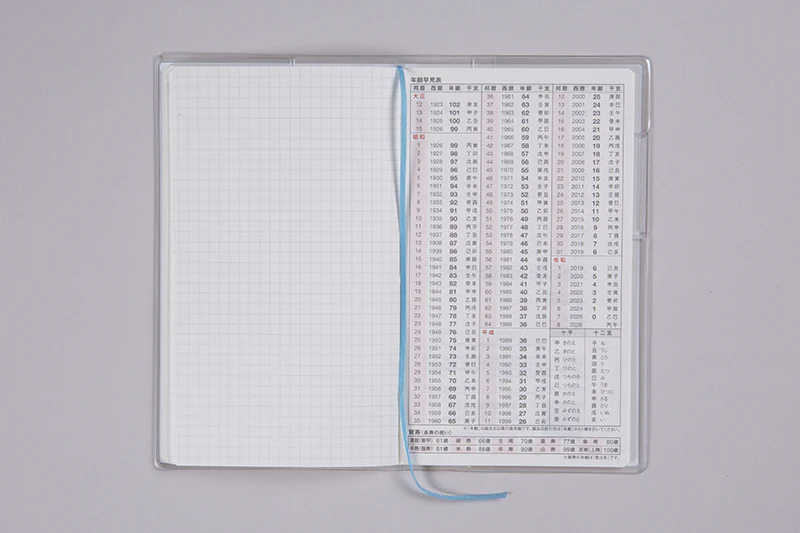 年齢早見表
邦暦 西暦 年齢 干支
大正
12 1923 102 癸亥
13 1924 101 甲子
14 1925 100 乙丑
15 1926 99 丙寅
昭和
1 1926 99 丙寅
2 1927 98 丁卯
3 1928 97 戊辰
4 1929 96 己巳
5 1930 95 庚午
6 1931 94 辛未
7 1932 93 壬申
8 1933 92 癸酉
9 1934 91 甲戌
10 1935 90 乙亥
11 1936 89 丙子
12 1937 88 丁丑
13 1938 87 戊寅
14 1939 86 己卯
15 1940 85 庚辰
16 1941 84 辛巳
17 1942 83 壬午
18 1943 82 癸未
19 1944 81 甲申
20 1945 80 乙酉
21 1946 79 丙戌
22 1947 78 丁亥
23 1948 77 戊子
24 1949 76 己丑
25 1950 75 庚寅
26 1951 74 辛卯
27 1952 73 壬辰
28 1953 72 癸巳
29 1954 71 甲午
30 1955 70 乙未
31 1956 69 丙申
32 1957 68 丁酉
33 1958 67 戊戌
34 1959 66 己亥
35 1960 65 庚子
邦暦 西暦 年齢 干支
36 1961 64 辛丑
37 1962 63 壬寅
38 1963 62 癸卯
39 1964 61 甲辰
40 1965 60 乙巳
41 1966 59 丙午
42 1967 58 丁未
43 1968 57 戊申
44 1969 56 己酉
45 1970 55 庚戌
46 1971 54 辛亥
47 1972 53 壬子
48 1973 52 癸丑
49 1974 51 甲寅
50 1975 50 乙卯
51 1976 49 丙辰
52 1977 48 丁巳
53 1978 47 戊午
54 1979 46 己未
55 1980 45 庚申
56 1981 44 辛酉
57 1982 43 壬戌
58 1983 42 癸亥
59 1984 41 甲子
60 1985 40 乙丑
61 1986 39 丙寅
62 1987 38 丁卯
63 1988 37 戊辰
64 1989 36 己巳
平成
1 1989 36 己巳
2 1990 35 庚午
3 1991 34 辛未
4 1992 33 壬申
5 1993 32 癸酉
6 1994 31 甲戌
7 1995 30 乙亥
8 1996 29 丙子
9 1997 28 丁丑
10 1998 27 戊寅
11 1999 26 己卯
邦暦 西暦 年齢 干支
12 2000 25 庚辰
13 2001 24 辛巳
14 2002 23 壬午
15 2003 22 癸未
16 2004 21 甲申
17 2005 20 乙酉
18 2006 19 丙戌
19 2007 18 丁亥
20 2008 17 戊子
21 2009 16 己丑
22 2010 15 庚寅
23 2011 14 辛卯
24 2012 13 壬辰
25 2013 12 癸巳
26 2014 11 甲午
27 2015 10 乙未
28 2016 9 丙申
29 2017 8 丁酉
30 2018 7 戊戌
31 2019 6 己亥
令和
1 2019 6 己亥
2 2020 5 庚子
3 2021 4 辛丑
4 2022 3 壬寅
5 2023 2 癸卯
6 2024 1 甲辰
7 2025 0 乙巳
8 2026 丙午
十干 十二支
甲 きのえ
乙 きのと
丙 ひのえ
丁 ひのと
戊 つちのえ
己 つちのと
庚 かのえ
辛 かのと
壬 みずのえ
癸 みずのと
子 ね
丑 うし
寅 とら
卯 う
辰 たつ
巳 み
午 うま
未 ひつじ
申 さる
酉 とり
戌 いぬ
亥 い
賀寿(長寿の祝い)
還暦(華甲) 61歳 緑寿 66歳 古稀 70歳 喜寿 77歳 傘寿 80歳
半寿(盤寿) 81歳 米寿 88歳 卒寿 90歳 白寿 99歳 百寿(上寿) 100歳
※賀寿の年齢は「数え年」です。